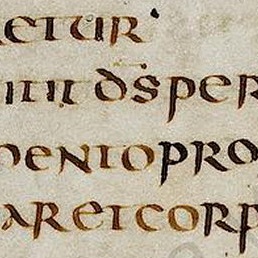 etur·
d̄s per
mento pro
aret corp